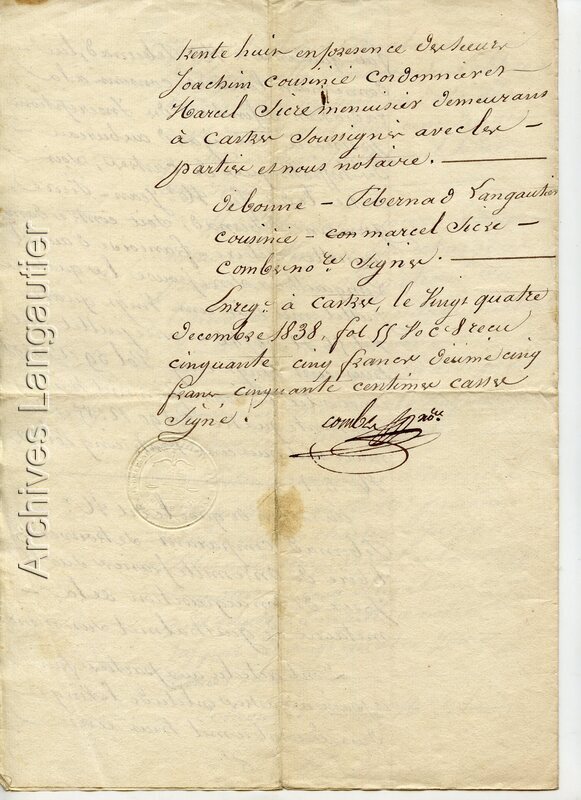 trente huit en présence des sieurs
Joachim cousinié cordonnier et
Marcel Sicre menuisier demeurans
à Castres Soussignés avec les
parties et nous notaire.
debonne – Tebernad Langautier
cousinié – con marcel Sicre –
combes nore. Signés.
Enregé. à castres, le Vingt quatre
decembre 1838, fol 55 Vo c 8 recu
cinquante cinq francs décime cinq
francs cinquante centimes
Signé.
combes nore.
Archives Langautier